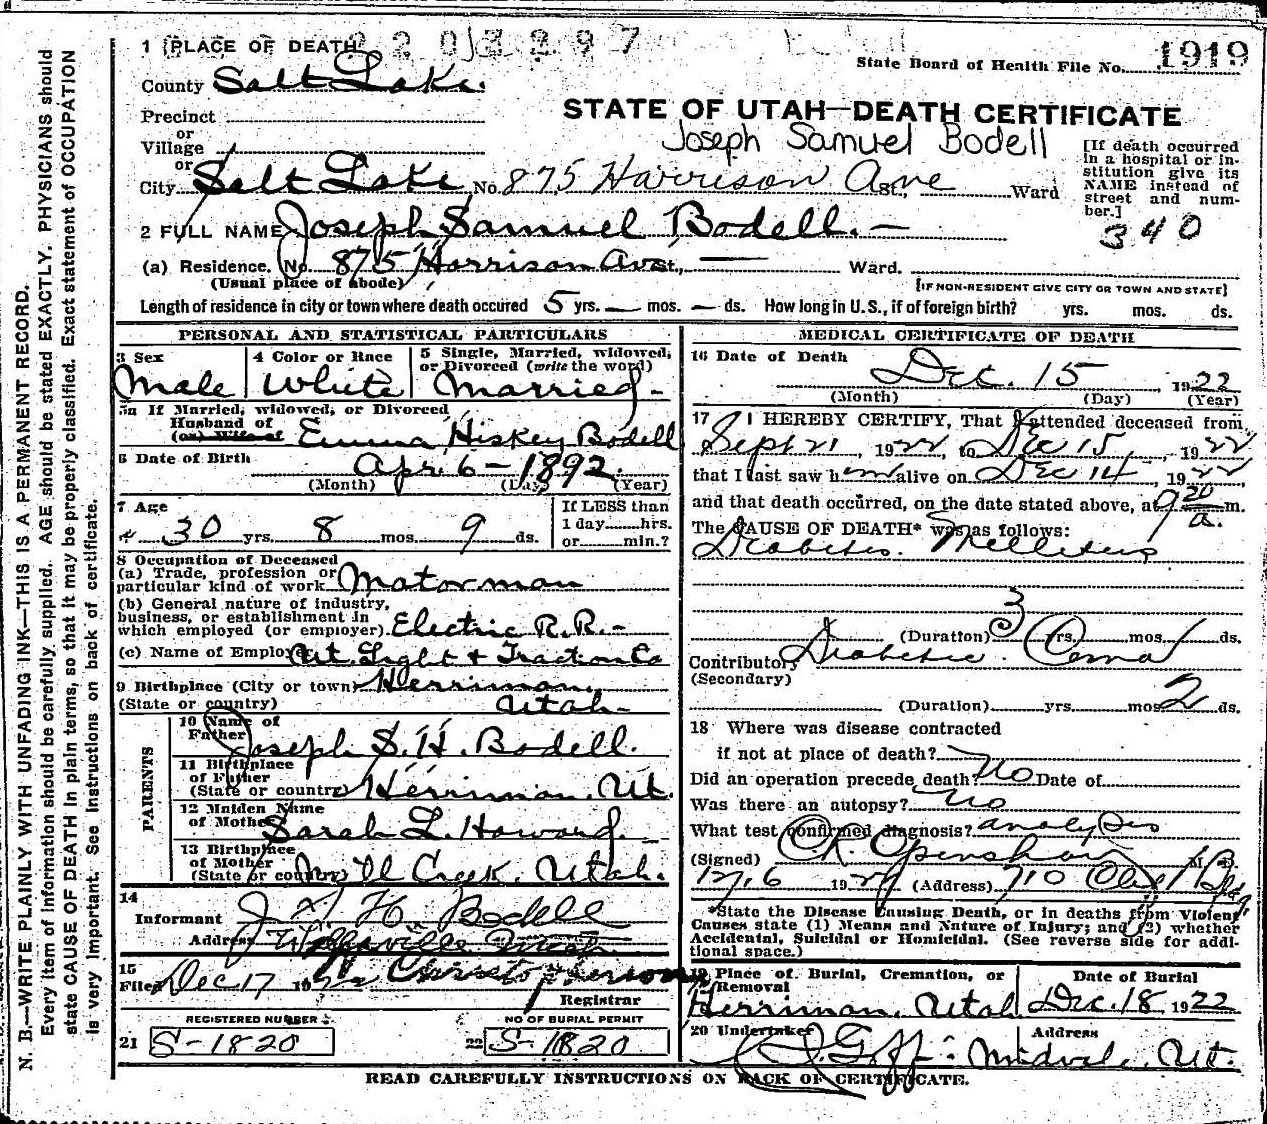 N. B.—WRITE PLAINLY WITH UNFADING INK—THIS IS A PERMANENT RECORD.
Every item of information should be carefully supplied. AGE should be stated EXACTLY. PHYSICIANS should
state CAUSE OF DEATH in plain terms, so that it may be properly classified. Exact statement of OCCUPATION
is very important. See instructions on back of certificate.
1 PLACE OF DEATH
State Board of Health File No. 1919
County Salt Lake.
STATE OF UTAH—DEATH CERTIFICATE
Precinct
or
Joseph Samuel Bodell
Village
or
City Salt Lake No. 875 Harrison Ave St., Ward
[If death occurred
in a hospital or in-
stitution give its
NAME instead of
street and num-
ber.]
340
2 FULL NAME Joseph Samuel Bodell.—
(a) Residence. No. 875 Harrison Ave St., Ward.
(Usual place of abode)
[IF NON-RESIDENT GIVE CITY OR TOWN AND STATE]
Length of residence in city or town where death occured 5 yrs. — mos. — ds. How long in U.S., if of foreign birth? yrs. mos. ds.
PERSONAL AND STATISTICAL PARTICULARS
3 Sex
Male
4 Color or Race
White
5 Single, Married, widowed,
or Divorced (write the word)
Married-
5a If Married, widowed, or Divorced
Husband of
(or) Wife of Emma Hiskey Bodell
6 Date of Birth Apr. 6 - 1892.
(Month) (Day) (Year)
7 Age
30 yrs. 8 mos. 9 ds.
If LESS than
1 day......hrs.
or......min.?
8 Occupation of Deceased
(a) Trade, profession or
particular kind of work Motorman
(b) General nature of industry,
business, or establishment in
which employed (or employer) Electric R.R.-
(c) Name of Employer Ut. Light & Traction Co
9 Birthplace (City or town) Herriman.
(State or country) Utah-
PARENTS
10 Name of
Father Joseph S. H. Bodell.
11 Birthplace
of Father
(State or country) Herriman, Ut.
12 Maiden Name
of Mother Sarah L. Howard.
13 Birthplace
of Mother
(State or country) Mill Creek, Utah.
14
Informant J. H. Bodell
Address Utah
15
Filed Dec 17 1922
Registrar
REGISTERED NUMBER
21 S-1820
NO OF BURIAL PERMIT
22 S-1820
MEDICAL CERTIFICATE OF DEATH
16 Date of Death
Dec. 15, 1922
(Month) (Day) (Year)
17 I HEREBY CERTIFY, That I attended deceased from
Sept 21, 1922, to Dec 15, 1922
that I last saw him alive on Dec 14, 1922,
and that death occurred, on the date stated above, at 9 20 a. m.
The CAUSE OF DEATH* was as follows:
Diabetes. Mellitus
(Duration) 3 yrs. mos. ds.
Contributory Diabetic. Coma
(Secondary)
(Duration) yrs. mos. 2 ds.
18 Where was disease contracted
if not at place of death?
Did an operation precede death? No Date of
Was there an autopsy? No
What test confirmed diagnosis? analysis
(Signed) Openshaw M. D.
(Address) 710
*State the Disease Causing Death, or in deaths from Violent
Causes state (1) Means and Nature of Injury; and (2) whether
Accidental, Suicidal or Homicidal. (See reverse side for addi-
tional space.)
19 Place of Burial, Cremation, or
Removal
Herriman, Utah
Date of Burial
Dec. 18, 1922
20 Undertaker
Goff
Address
Midvale, Ut.
READ CAREFULLY INSTRUCTIONS ON BACK OF CERTIFICATE.